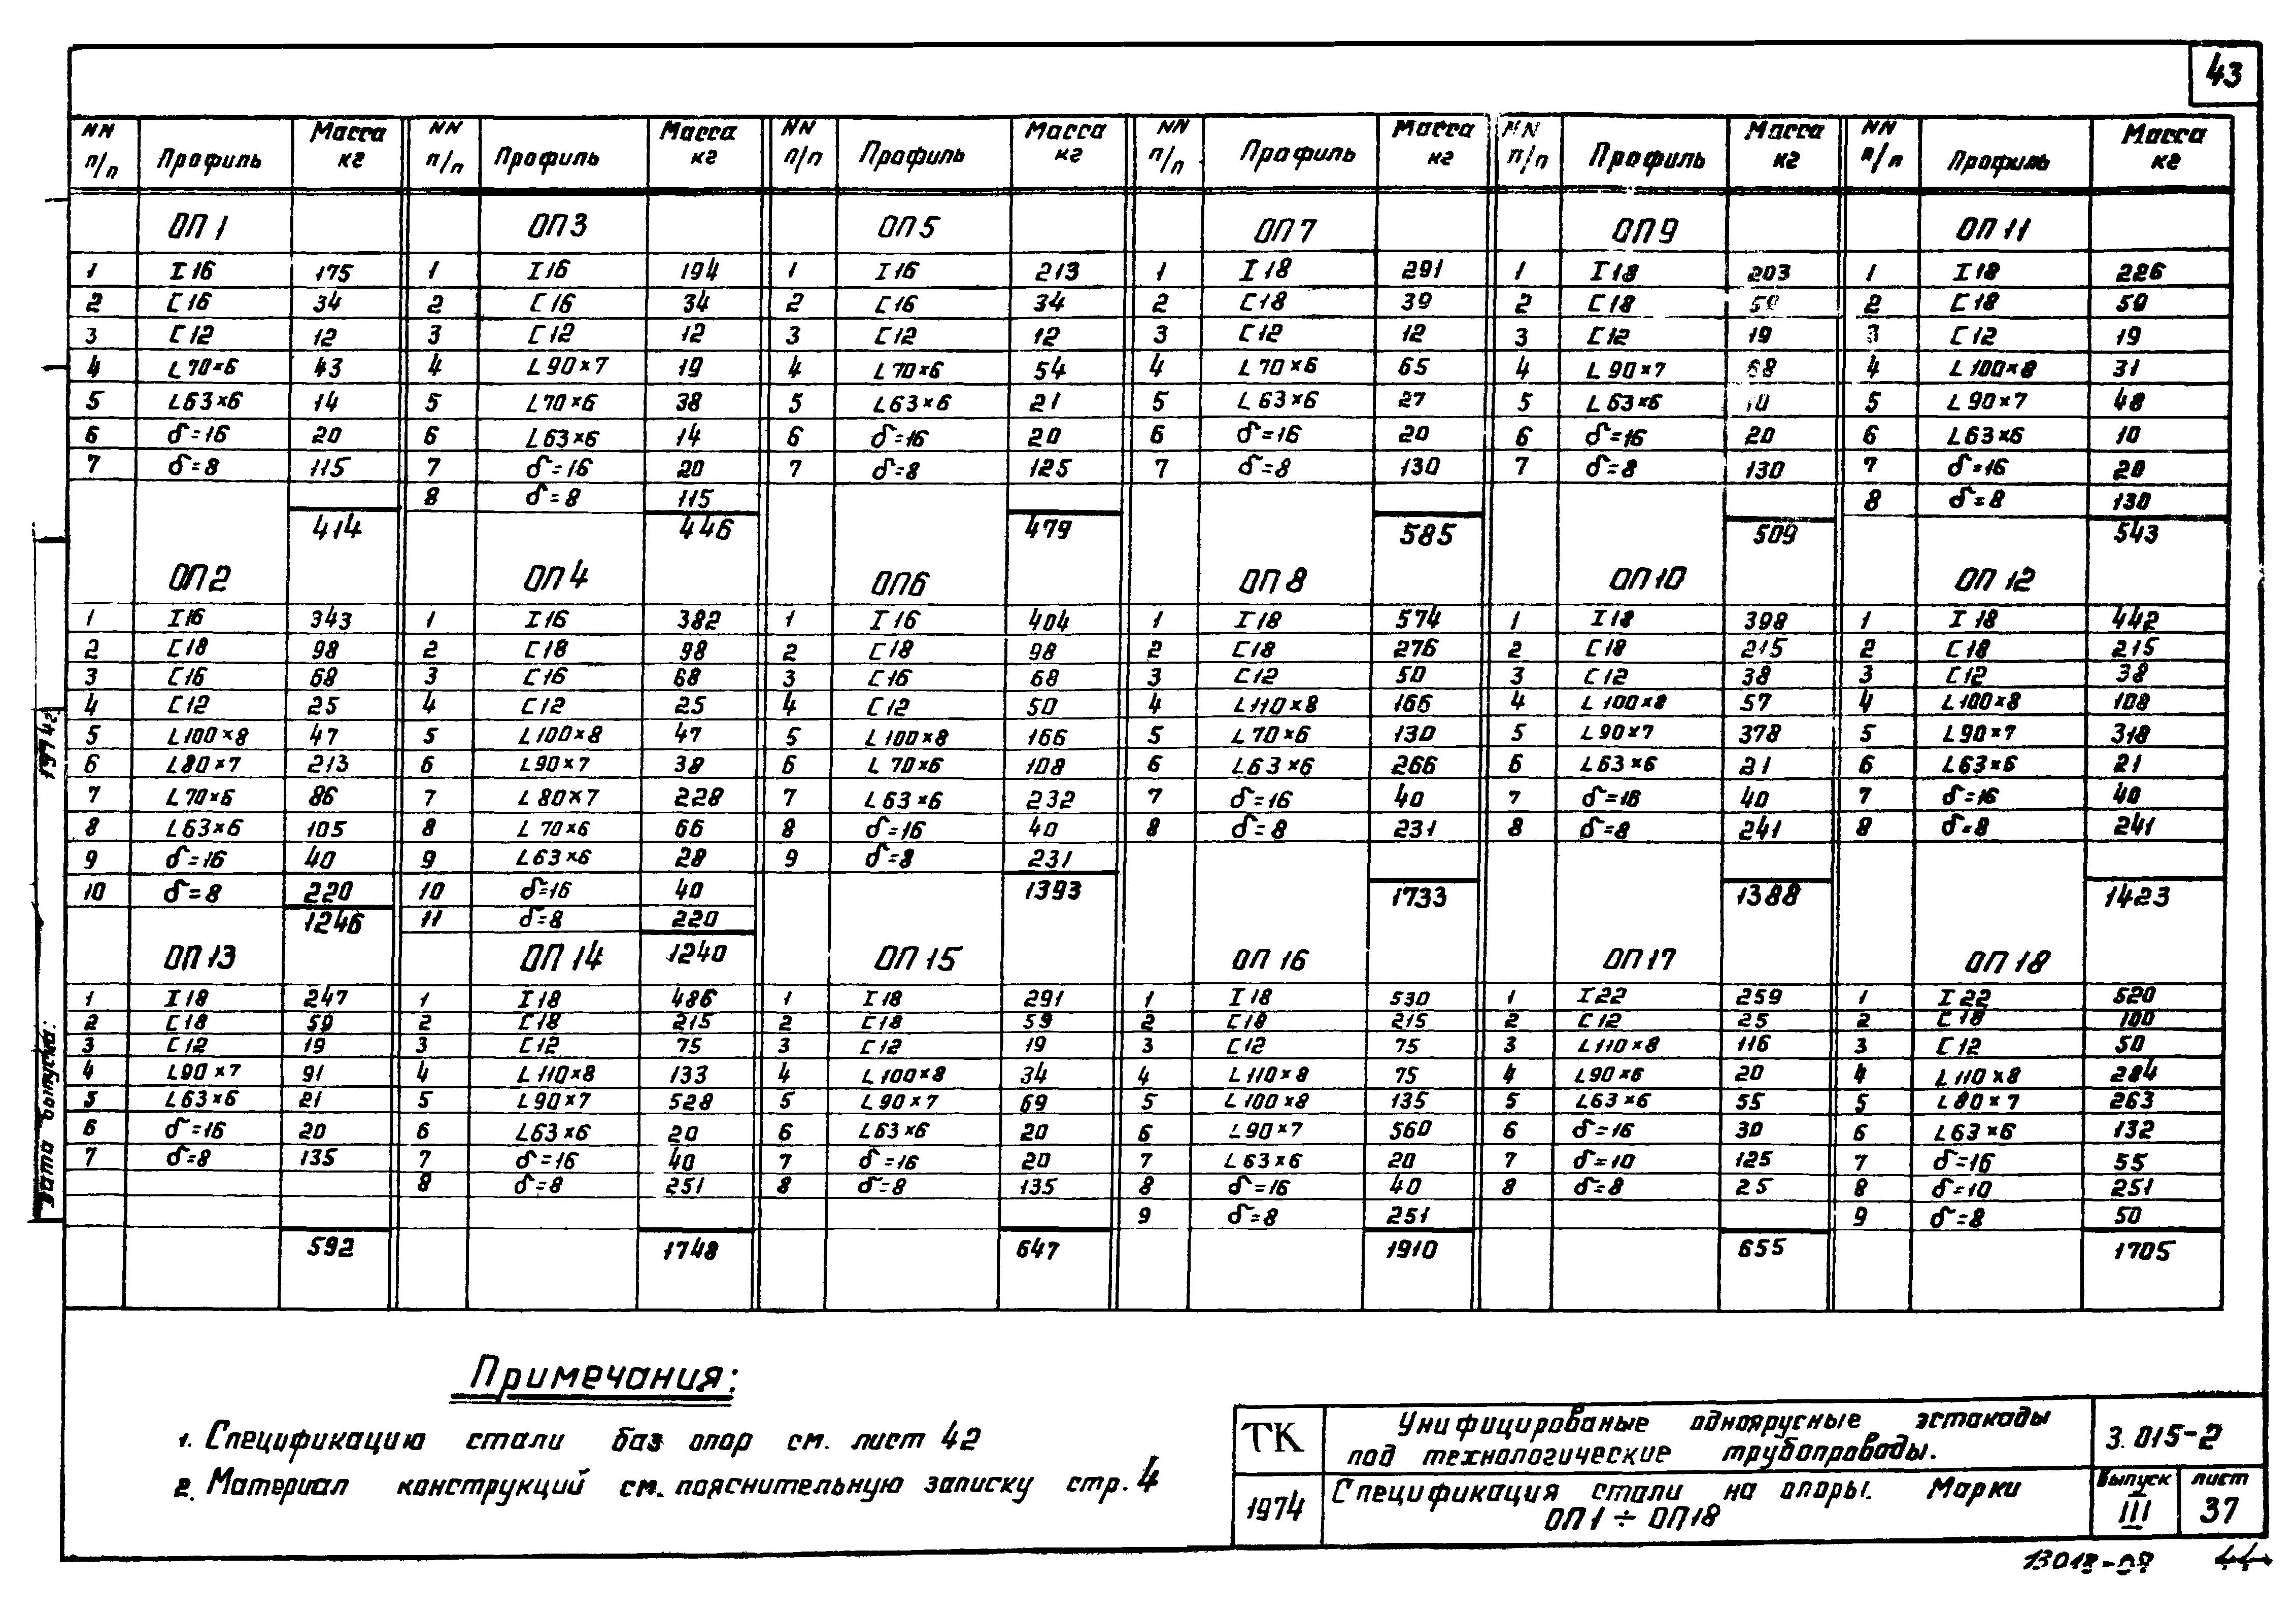 43
NN п/п Профиль Масса кг NN п/п Профиль Масса кг NN п/п Профиль Масса кг NN п/п Профиль Масса кг NN п/п Профиль Масса кг NN п/п Профиль Масса кг
ОП 1 ОП 3 ОП 5 ОП 7 ОП 9 ОП 11
1 I 16 175 1 I 16 194 1 I 16 213 1 I 18 291 1 I 18 203 1 I 18 226
2 С 16 34 2 С 16 34 2 С 16 34 2 С 18 39 2 С 18 59 2 С 18 59
3 С 12 12 3 С 12 12 3 С 12 12 3 С 12 12 3 С 12 19 3 С 12 19
4 L 70×6 43 4 L 90×7 19 4 L 70×6 54 4 L 70×6 65 4 L 90×7 68 4 L 100×8 31
5 L 63×6 14 5 L 70×6 38 5 L 63×6 21 5 L 63×6 27 5 L 63×6 10 5 L 90×7 48
6 δ=16 20 6 L 63×6 14 6 δ=16 20 6 δ=16 20 6 δ=16 20 6 L 63×6 10
7 δ=8 115 7 δ=16 20 7 δ=8 125 7 δ=8 130 7 δ=8 130 7 δ=16 20
8 δ=8 115 8 δ=8 130
414 446 479 585 509 543
ОП 2 ОП 4 ОП 6 ОП 8 ОП 10 ОП 12
1 I 16 343 1 I 16 382 1 I 16 404 1 I 18 574 1 I 18 398 1 I 18 442
2 С 18 98 2 С 18 98 2 С 18 98 2 С 18 276 2 С 18 215 2 С 18 215
3 С 16 68 3 С 16 68 3 С 16 68 3 С 12 50 3 С 12 38 3 С 12 38
4 С 12 25 4 С 12 25 4 С 12 50 4 L 110×8 166 4 L 100×8 57 4 L 100×8 108
5 L 100×8 47 5 L 100×8 47 5 L 100×8 166 5 L 70×6 130 5 L 90×7 378 5 L 90×7 318
6 L 80×7 213 6 L 90×7 38 6 L 70×6 108 6 L 63×6 266 6 L 63×6 21 6 L 63×6 21
7 L 70×6 86 7 L 80×7 228 7 L 63×6 232 7 δ=16 40 7 δ=16 40 7 δ=16 40
8 L 63×6 105 8 L 70×6 66 8 δ=16 40 8 δ=8 231 8 δ=8 241 8 δ=8 241
9 δ=16 40 9 L 63×6 28 9 δ=8 231
10 δ=8 220 10 δ=16 40 1393 1733 1388 1423
1246 11 δ=8 220
ОП 13 ОП 14 1240 ОП 15 ОП 16 ОП 17 ОП 18
1 I 18 247 1 I 18 486 1 I 18 291 1 I 18 530 1 I 22 259 1 I 22 520
2 С 18 59 2 С 18 215 2 С 18 59 2 С 18 215 2 С 12 25 2 С 18 100
3 С 12 19 3 С 12 75 3 С 12 19 3 С 12 75 3 L 110×8 116 3 С 12 50
4 L 90×7 91 4 L 110×8 133 4 L 100×8 34 4 L 110×8 75 4 L 90×6 20 4 L 110×8 284
5 L 63×6 21 5 L 90×7 528 5 L 90×7 69 5 L 100×8 135 5 L 63×6 55 5 L 80×7 263
6 δ=16 20 6 L 63×6 20 6 L 63×6 20 6 L 90×7 560 6 δ=16 30 6 L 63×6 132
7 δ=8 135 7 δ=16 40 7 δ=16 20 7 L 63×6 20 7 δ=10 125 7 δ=16 55
8 δ=8 251 8 δ=8 135 8 δ=16 40 8 δ=8 25 8 δ=10 251
9 δ=8 251 9 δ=8 50
592 1748 647 1910 655 1705
Дата выпуска: 1974г
Примечания:
1. Спецификацию стали баз опор см. лист 42
2. Материал конструкций см. пояснительную записку стр. 4
ТК
1974
Унифицированые одноярусные эстакады
под технологические трубопроводы.
3.015-2
Спецификация стали на опоры. Марки
ОП 1 ÷ ОП 18
Выпуск III
лист 37
13018-08 44